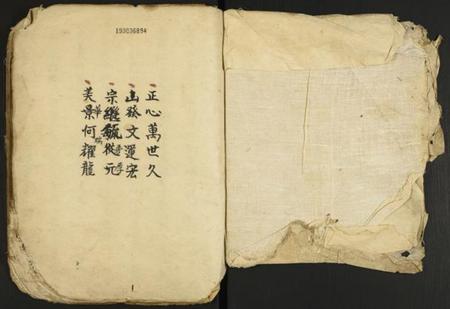 193036894
正心萬世久
山發文運宏
宗繼毓從元
美景何耀龍